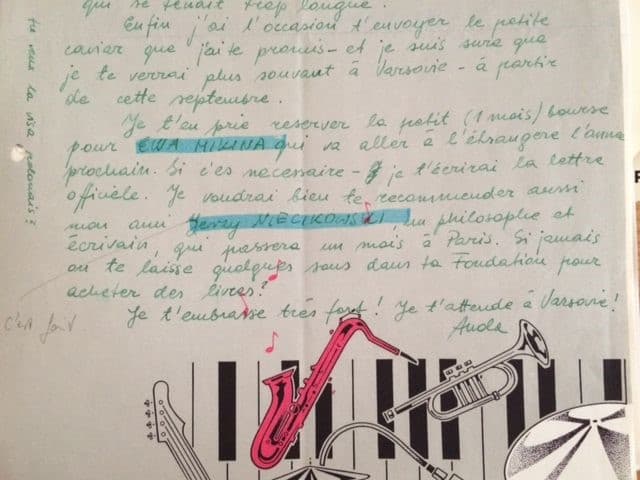 qui se tenait trop longue.
Enfin j'ai l'occasion t'envoyer le petite
caviar que j'aite promis - et je suis sure que
je te verrai plus souvant à Varsovie - à partir
de cette septembre.
Je t'en prie reserver la petit (1 mois) bourse
pour EWA MIKINA qui va aller à l'étrangère l'anné
prochain. Si c'es necessaire - je t'écrirai la lettre
officièle. Je voudrai bien te recommender aussi
mon ami Jerzy NIECIKOWSKI, un philosophe et
écrivain, qui passera un mois à Paris. Si jamais
on te laisse quelques sous dans ta Foundation pour
acheter des livres?
Je t'embrasse très fort! Je t'attende à Varsovie!
Anda
c'est fait
la visa polonais?